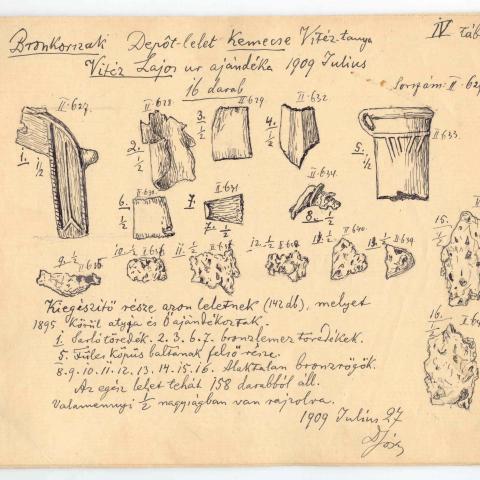 Bronkorszak Depôt-lelet Kemecse Vitéz-tanya IV táb
Vitéz Lajos ur ajándéka 1909 Julius
16 darab
Sorszám: II-62
II-627. II-628 II-629 II-632. II-633.
1. 1/2 2. 1/2 3. 1/2 4. 1/2 5. 1/2
II-630 II-631 II-634.
6. 1/2 7. 1/2 8. 1/2
9. 1/2 10. 1/2 11. 1/2 12. 1/2 II-640. II-639.
15. 1/2
16. 1/2
Kiegészitő része azon leletnek (142 db), melyet
1895 körül atyja és ő ajándékoztak.
1. Sarló töredék. 2. 3. 6. 7. bronzlemez töredékek.
5. Füles kópüs baltának felső része.
8. 9. 10. 11. 12. 13. 14. 15. 16. Alaktalan bronzrögök.
Az egész lelet tehát 158 darabból áll.
Valamennyi 1/2 nagyságban van rajzolva.
1909 Julius 27
D Jósa